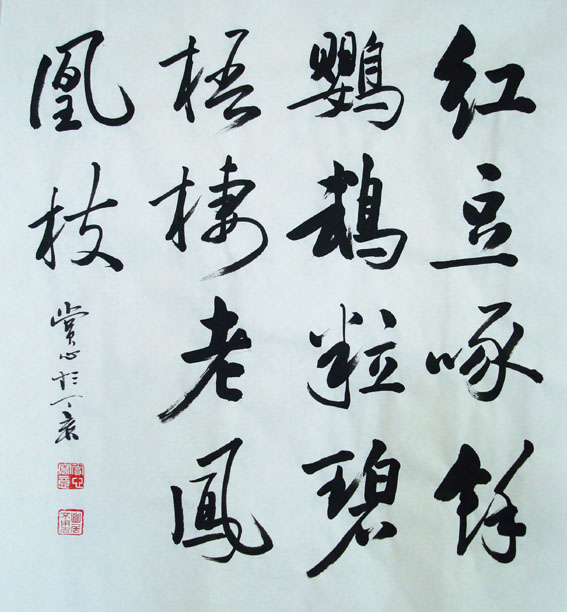 紅豆啄餘
鸚鵡粒碧
梧棲老鳳
凰枝
賞心於丁亥